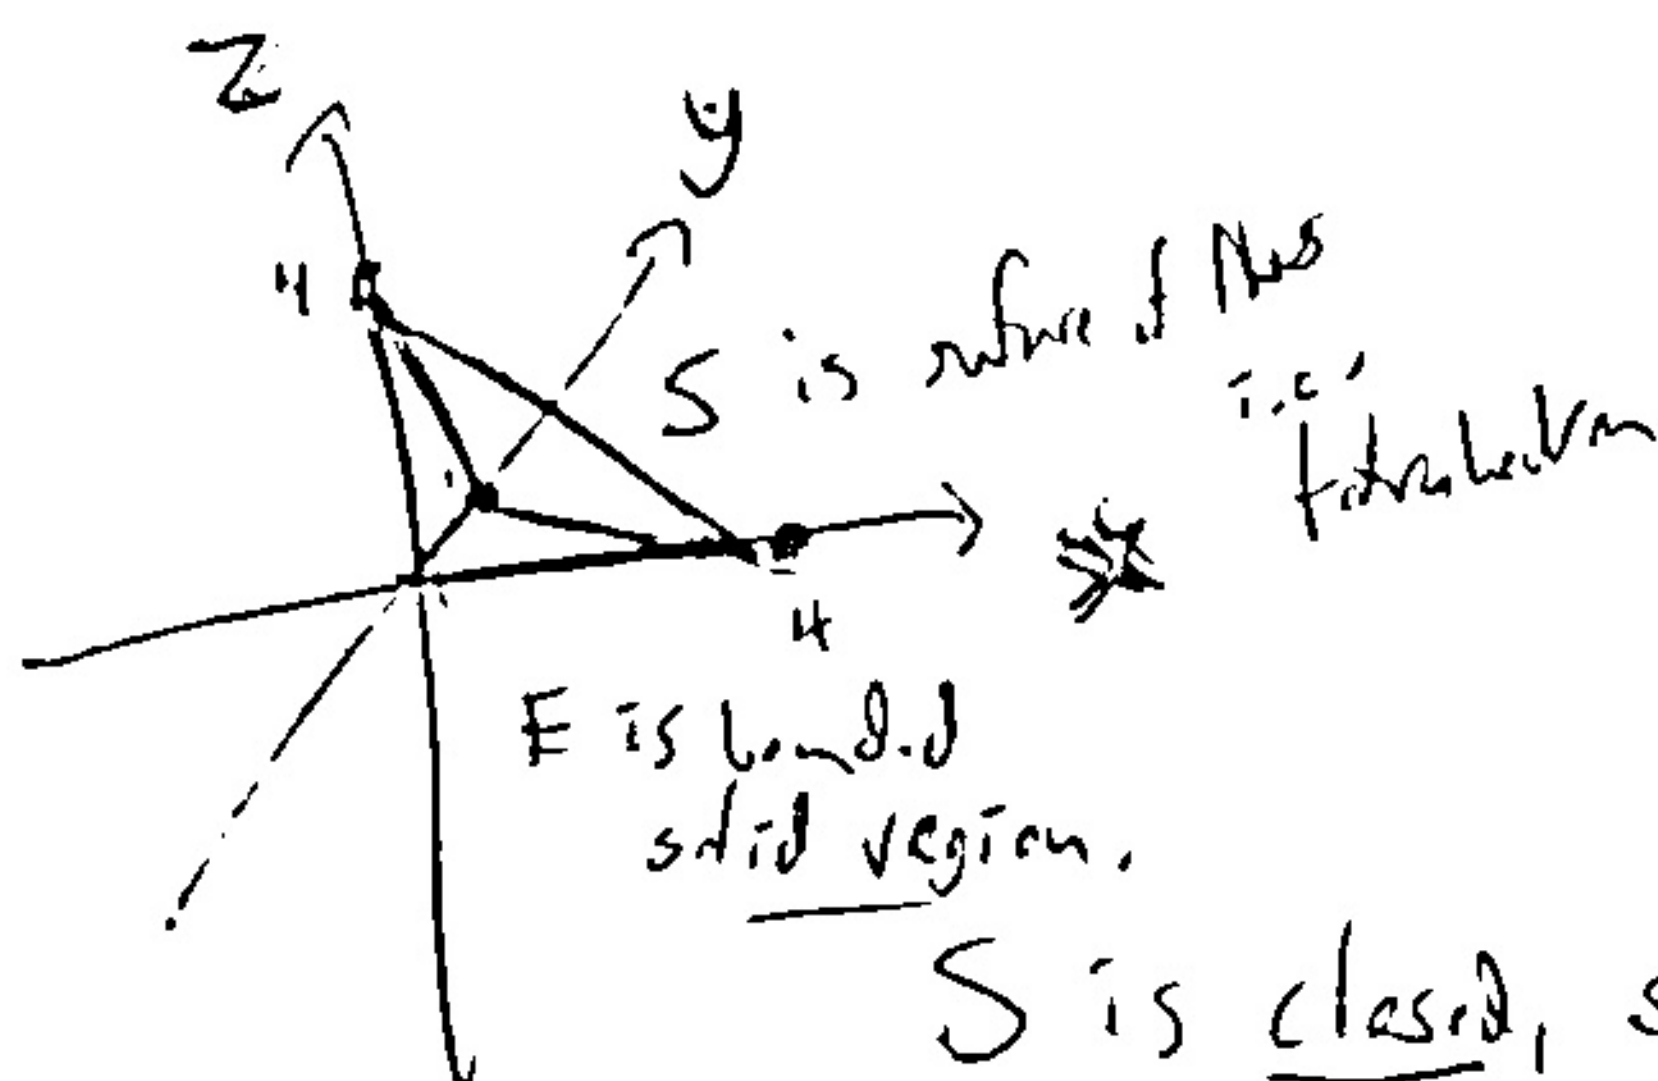 z
y
4
S is surface of this
i.e.
tetrahedron
4
E is bounded
solid region.
S is closed, s